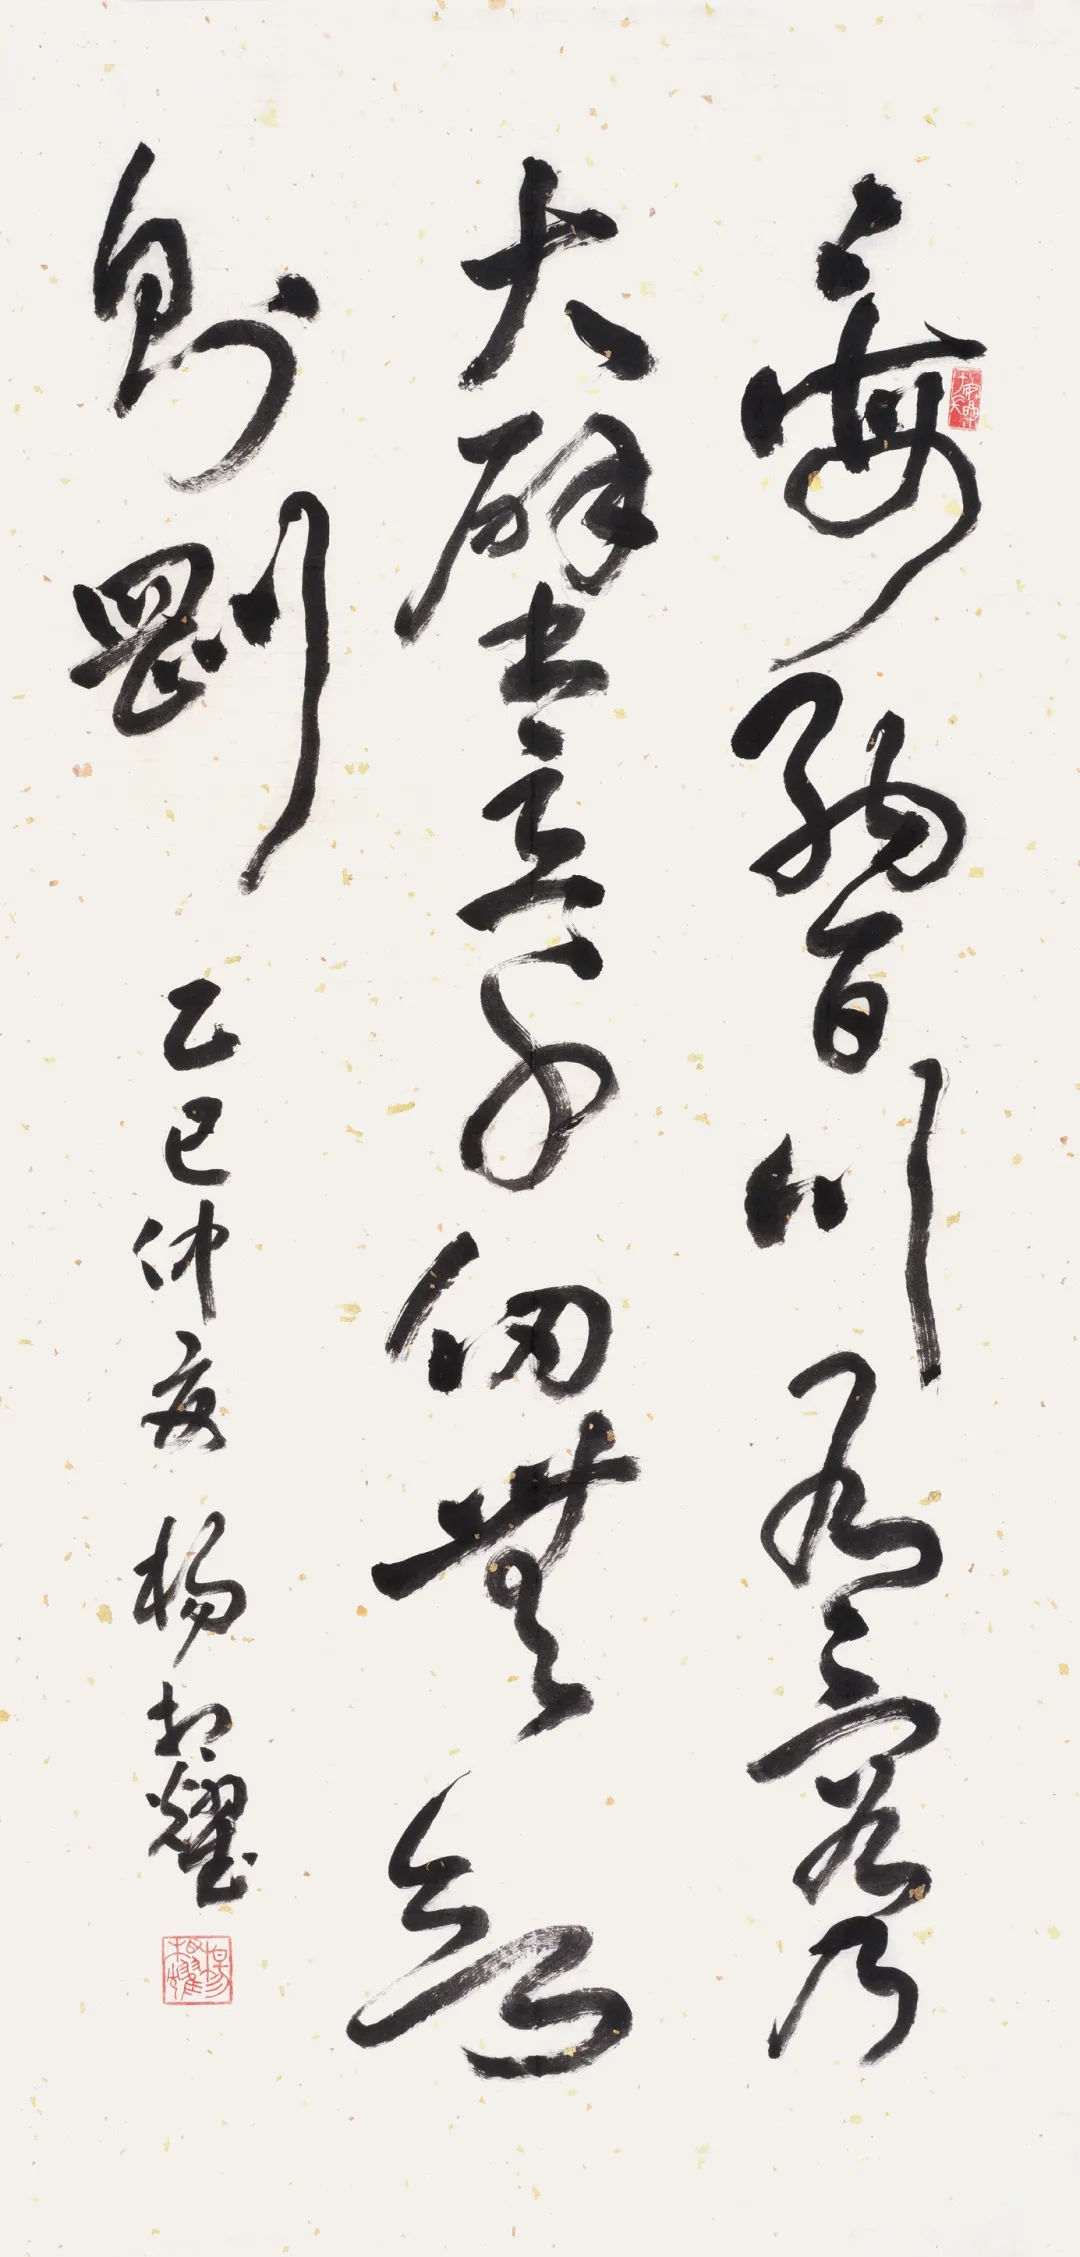 海納百川有容乃
大壁立千仞無欲
則剛 乙巳仲夏 楊耀